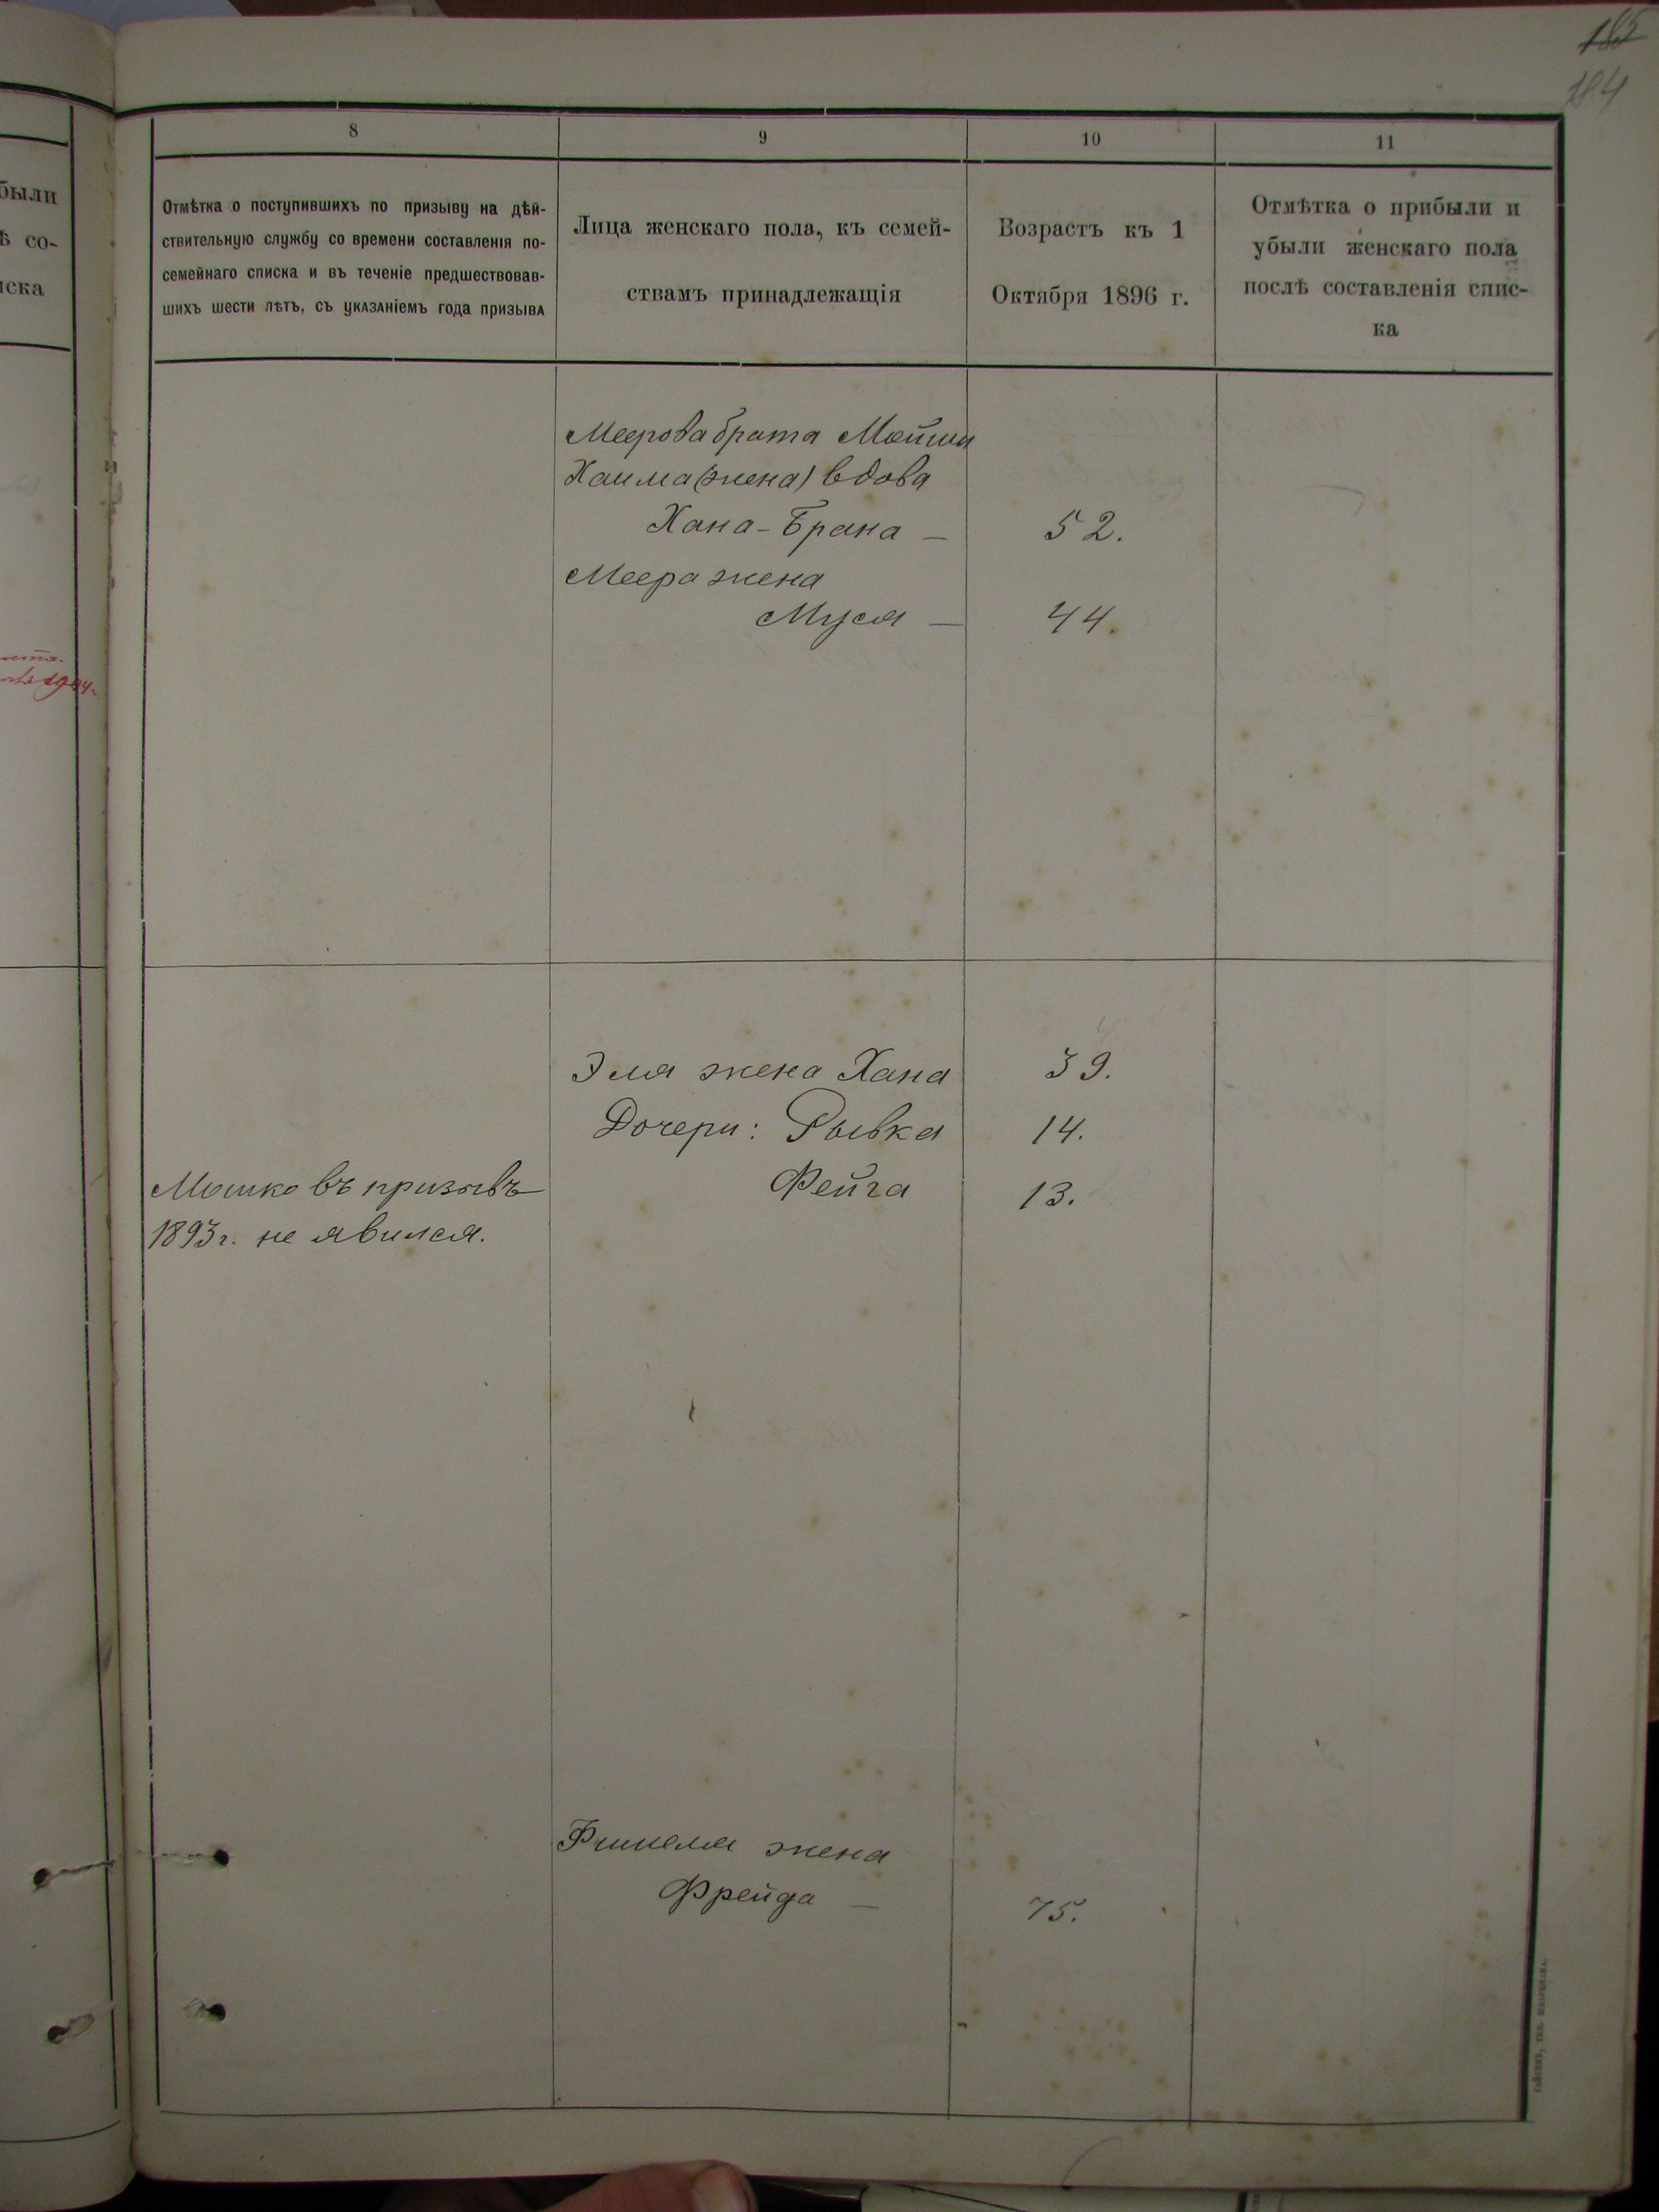 185
184
были
ѣ со-
иска
8
9
10
11
Отмѣтка о поступившихъ по призыву на дѣй-
ствительную службу со времени составленія по-
семейнаго списка и въ теченіе предшествовав-
шихъ шести лѣтъ, съ указаніемъ года призыва
Лица женскаго пола, къ семей-
ствамъ принадлежащія
Возрастъ къ 1
Октября 1896 г.
Отмѣтка о прибыли и
убыли женскаго пола
послѣ составленія спис-
ка
Меерова брата Мойши
Хаима (жена) вдова
Хана-Брана — 52.
Меера жена
Муся — 44.
Эля жена Хана 39.
Дочери: Рывка 14.
Фейга 13.
Мошко въ призывъ
1893 г. не явился.
жена
Фрейда — 75.